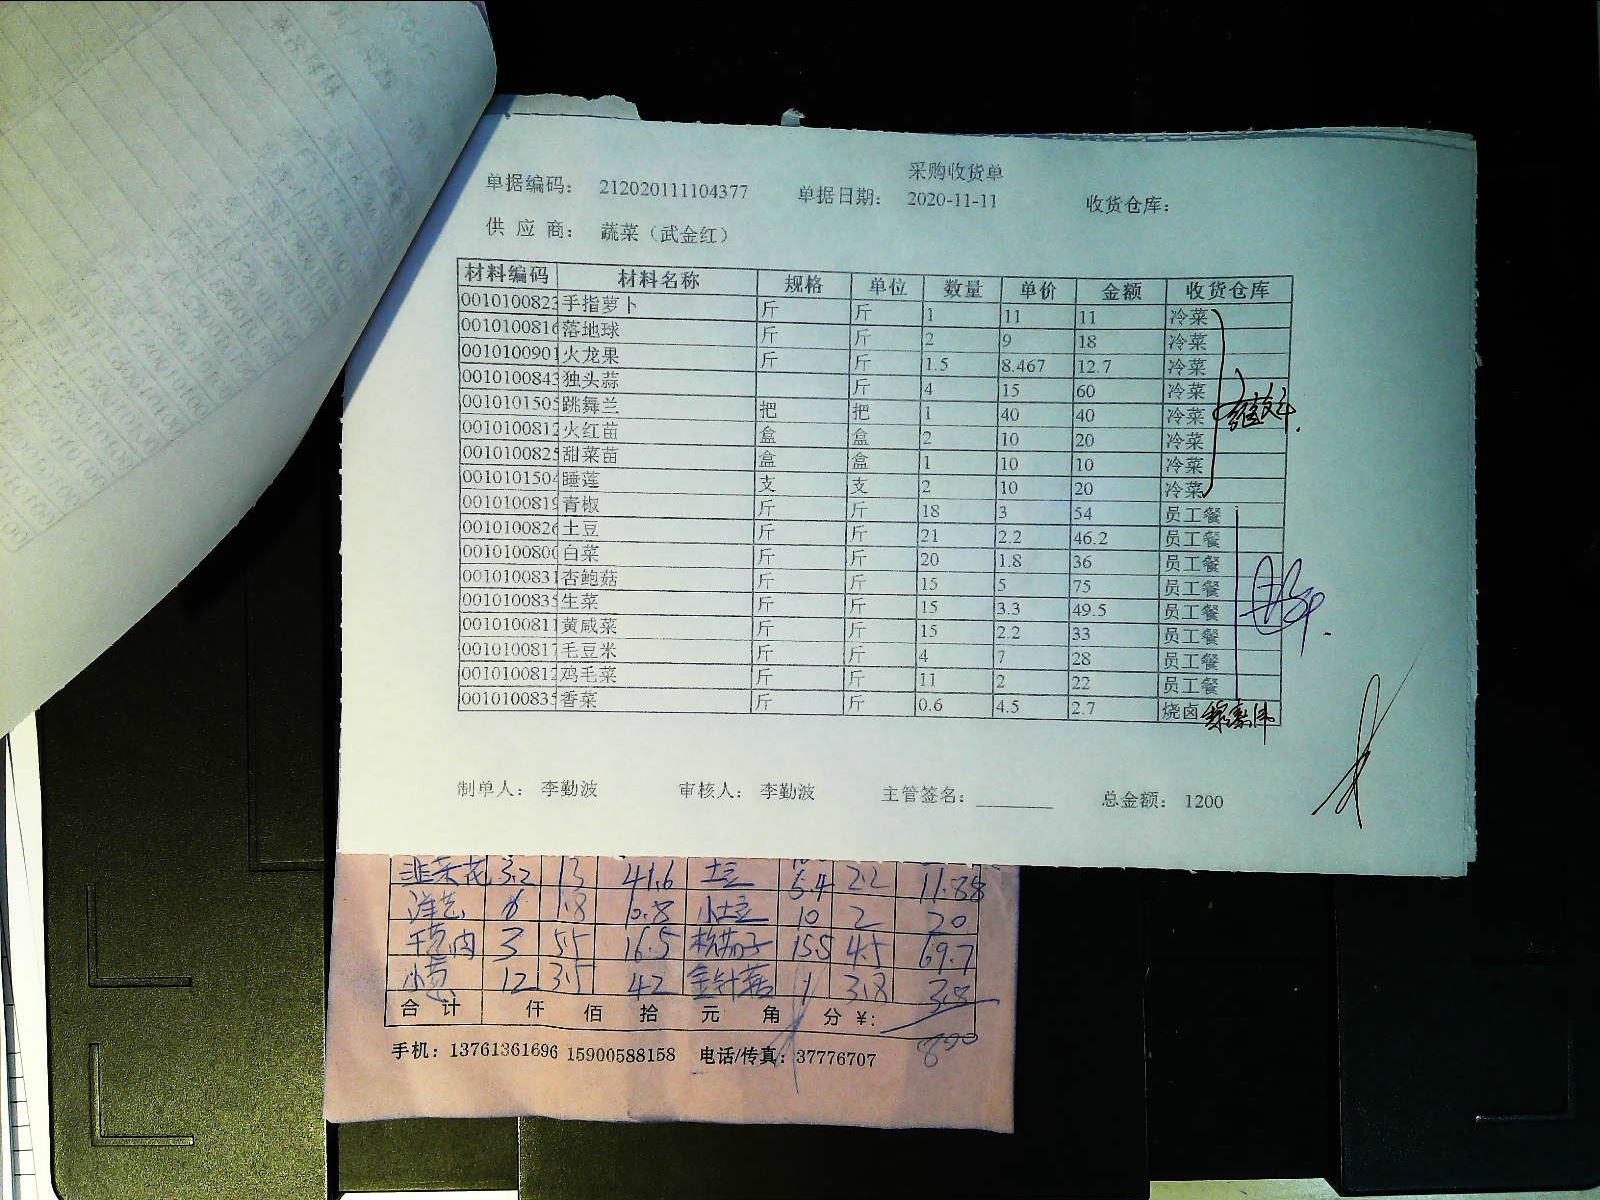 采购收货单
单据编码： 212020111104377 单据日期： 2020-11-11 收货仓库：
供 应 商： 蔬菜（武金红）
材料编码 材料名称 规格 单位 数量 单价 金额 收货仓库
0010100823 手指萝卜 斤 斤 1 11 11 冷菜
0010100816 落地球 斤 斤 2 9 18 冷菜
0010100901 火龙果 斤 斤 1.5 8.467 12.7 冷菜
0010100843 独头蒜 斤 4 15 60 冷菜
0010101505 跳舞兰 把 把 1 40 40 冷菜
0010100812 火红苗 盒 盒 2 10 20 冷菜
0010100825 甜菜苗 盒 盒 1 10 10 冷菜
0010101504 睡莲 支 支 2 10 20 冷菜
0010100819 青椒 斤 斤 18 3 54 员工餐
0010100826 土豆 斤 斤 21 2.2 46.2 员工餐
0010100800 白菜 斤 斤 20 1.8 36 员工餐
0010100831 杏鲍菇 斤 斤 15 5 75 员工餐
0010100835 生菜 斤 斤 15 3.3 49.5 员工餐
0010100811 黄咸菜 斤 斤 15 2.2 33 员工餐
0010100817 毛豆米 斤 斤 4 7 28 员工餐
0010100812 鸡毛菜 斤 斤 11 2 22 员工餐
0010100835 香菜 斤 斤 0.6 4.5 2.7 烧卤
制单人： 李勤波 审核人： 李勤波 主管签名： 总金额： 1200
韭菜花 3.2 13 41.6 土豆 5.4 2.2 11.88
6 1.8 10.8 小土豆 10 2 20
3 5.5 16.5 杭茄子 15.5 4.5 69.7
12 3.5 42 金针菇 1 3.8 3.8
合 计 仟 佰 拾 元 角 分 ¥:
手机：13761361696 15900588158 电话/传真：37776707